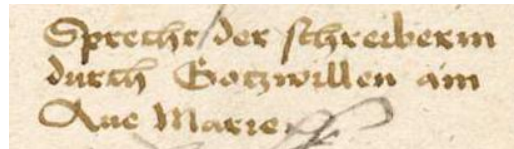 Sprecht der schreiberin
durch Gotzwillen ain
Aue Marie